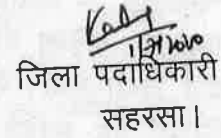 जिला पदाधिकारी
सहरसा।